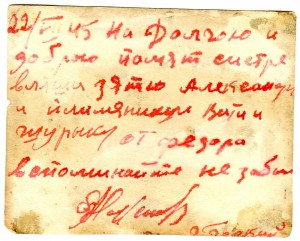 22/VI 45 На Долгою и
доброю помят систре
зятю Александру
и племяникам Вити и
Шурыку от Федора
вспоминайте не забы